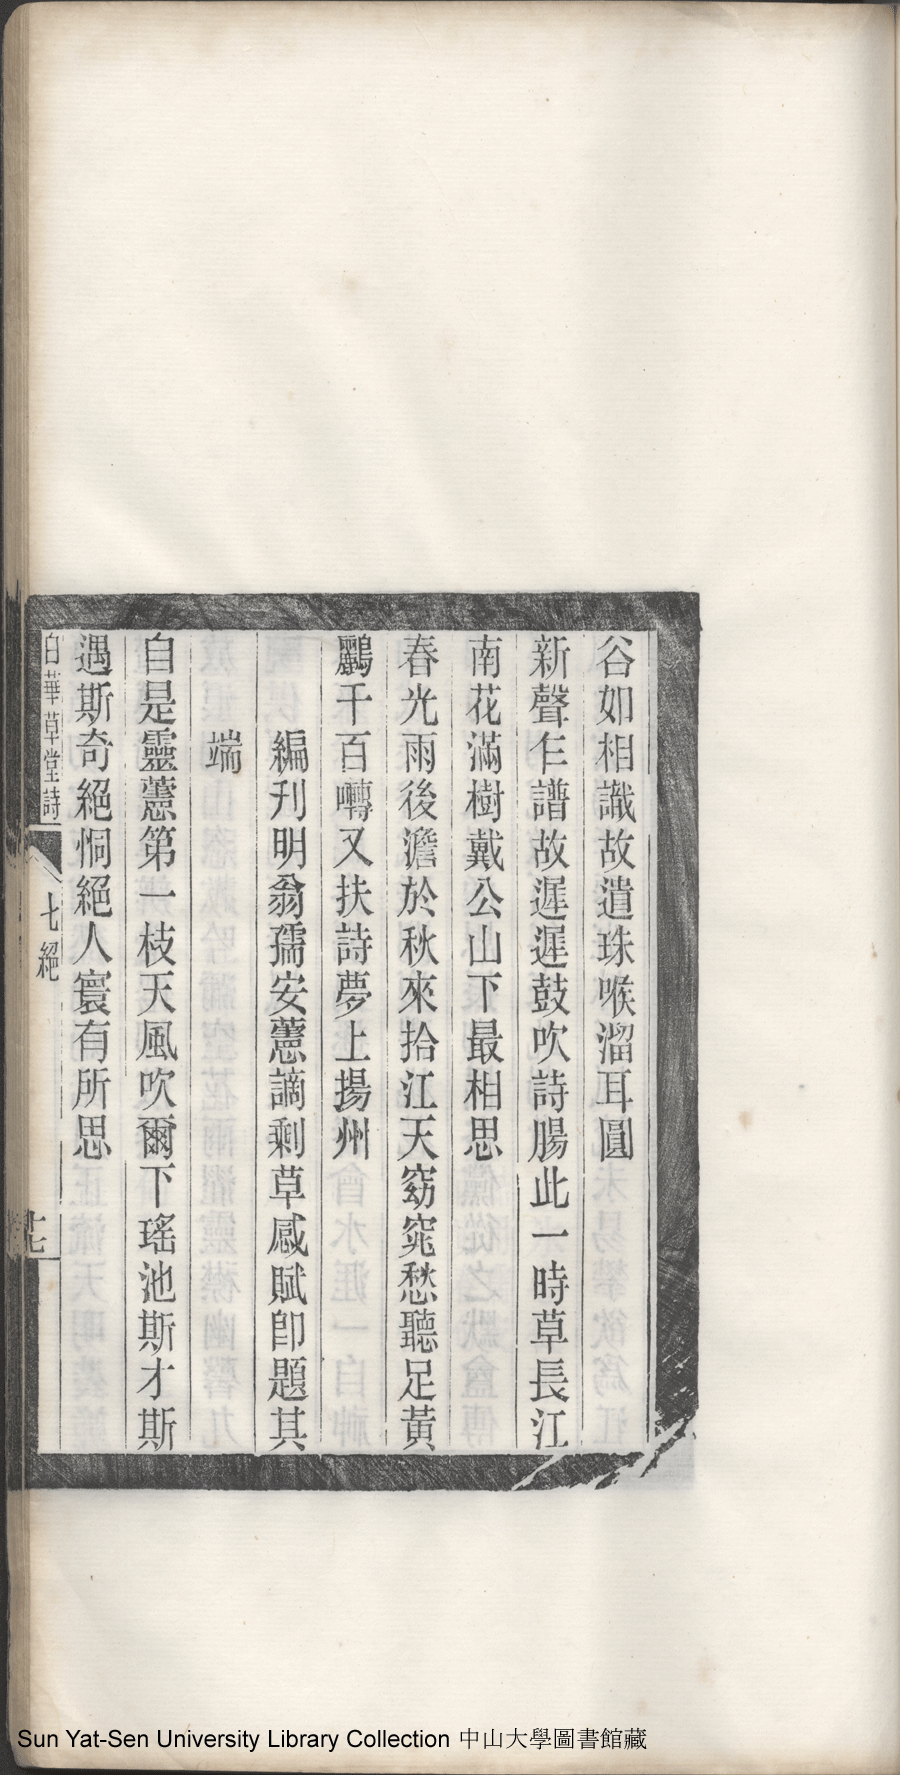 谷如相識故遺珠喉溜耳圓
新聲乍譜故遲遲鼓吹詩腸此一時草長江
南花滿樹戴公山下最相思
春光雨後澹於秋來拾江天窈窕愁聽足黃
鸝千百囀又扶詩夢上揚州
編刋明翁孺安藼謫剩草感賦卽題其
端
自是靈藼第一枝天風吹爾下瑤池斯才斯
遇斯奇絕恫絕人寰有所思
白華草堂詩
七絕
十七
Sun Yat-Sen University Library Collection 中山大學圖書館藏